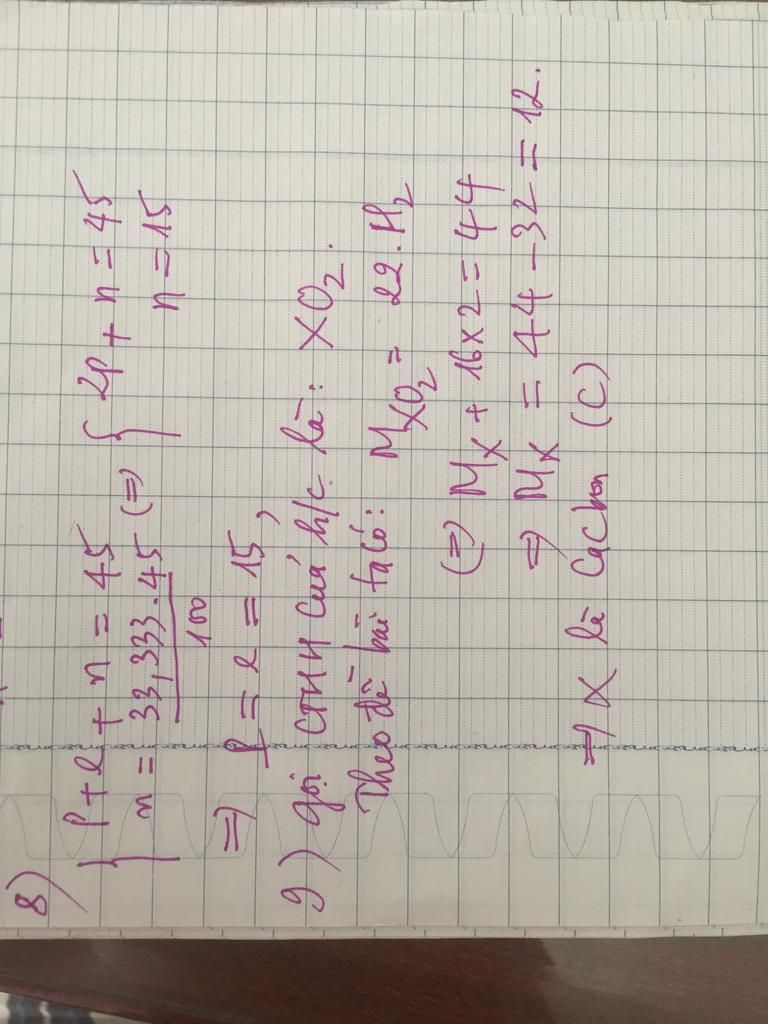 8)
{ p + e + n = 45
n = 33,333.45/100 (=) { 2p + n = 45
n = 15
=) p = e = 15,
9) gọi CTHH cuả h/c là: XO2.
Theo đề bài ta có: MXO2 = 22.H2
(=) MX + 16x2 = 44
=) MX = 44 - 32 = 12.
=) X là Cacbon (C)